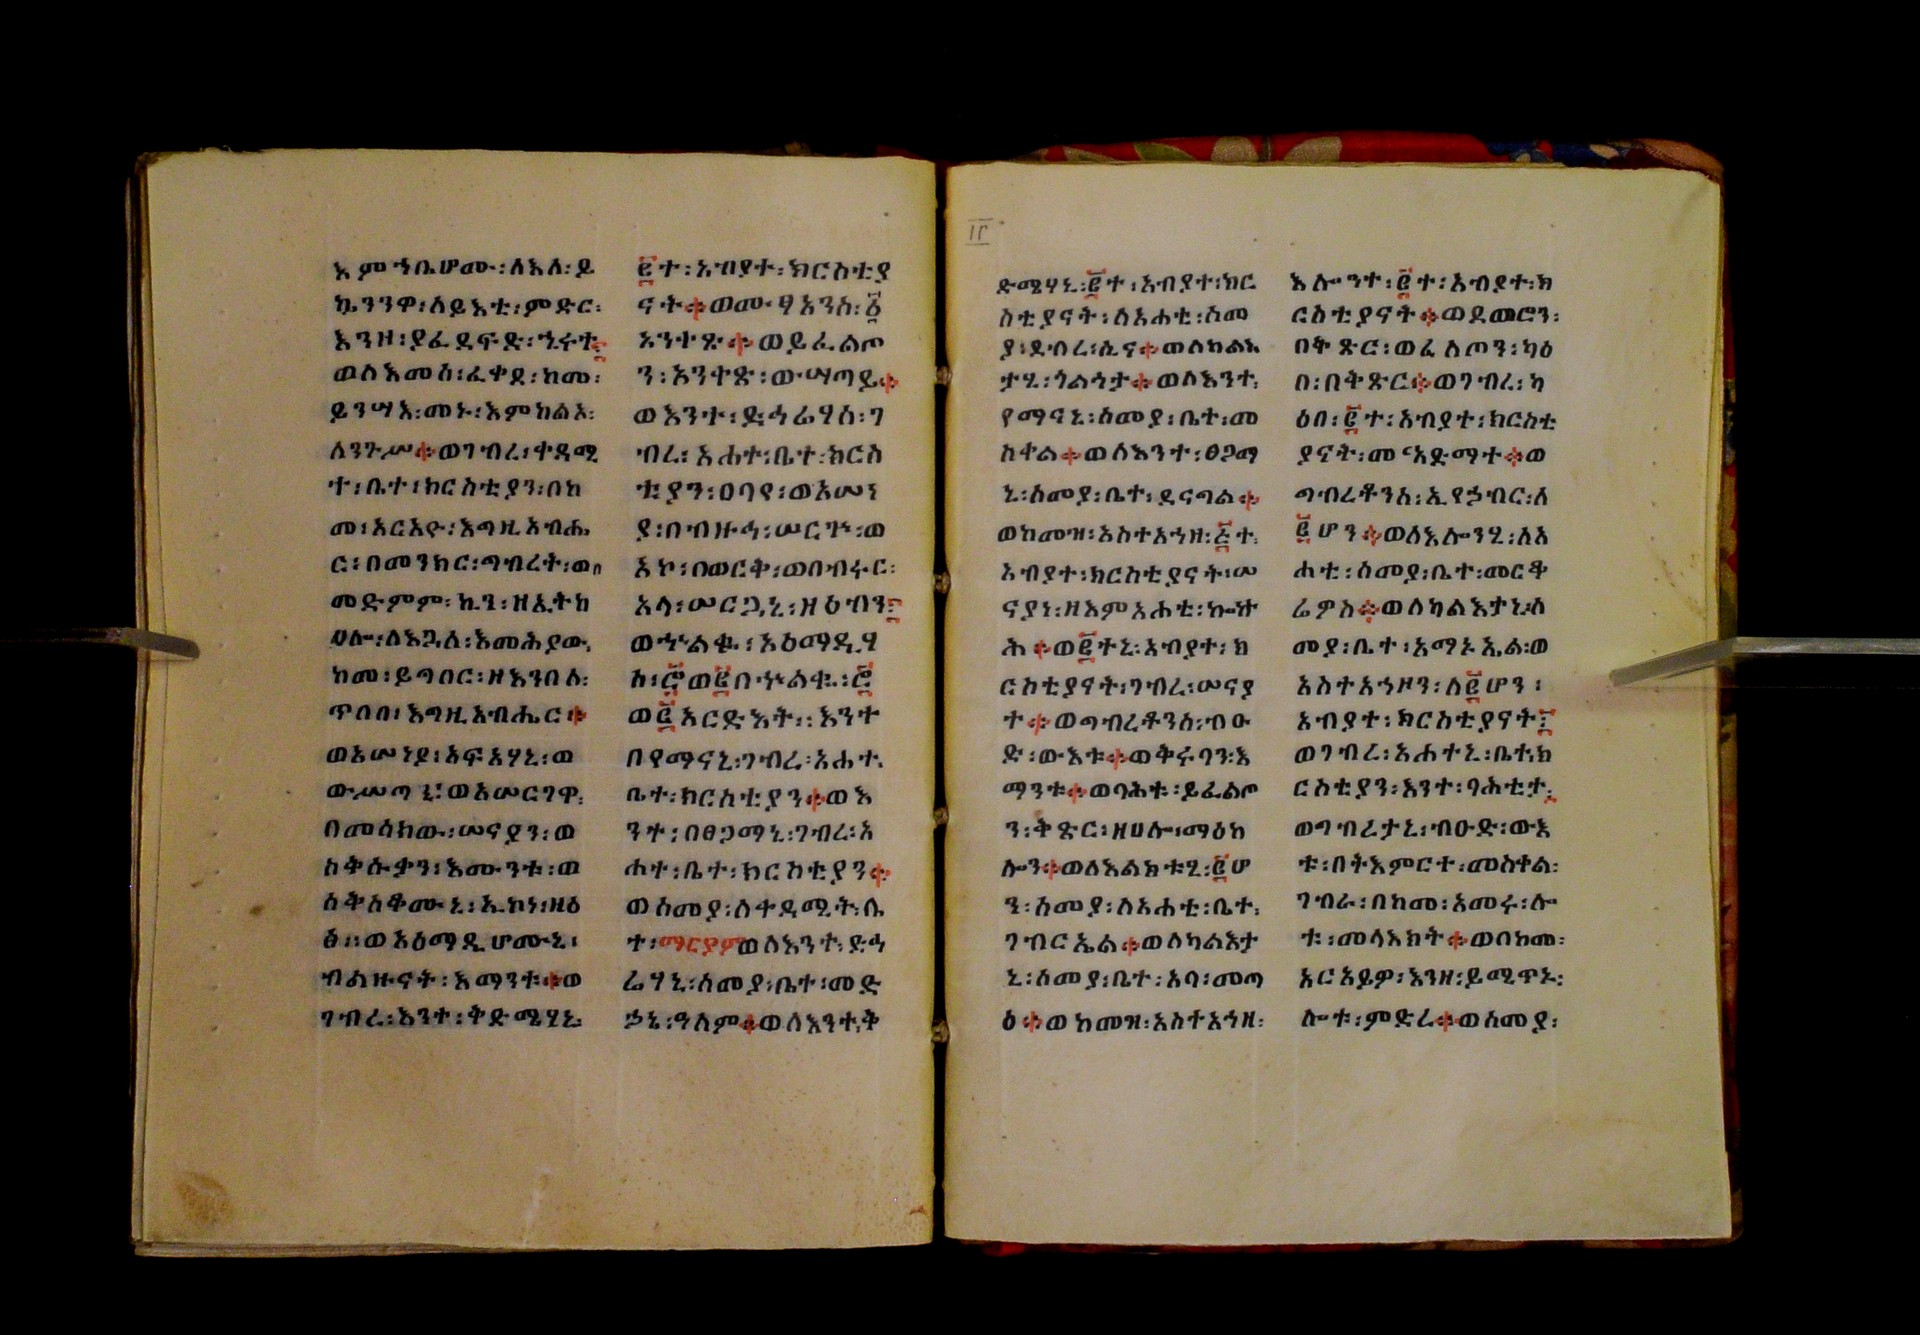 እምኀቤሆሙ፡ለእለ፡ይ
ኬንንዋ፡ለይእቲ፡ምድር፡
እንዘ፡ያፈደፍድ፡ኂሩተ፤
ወሶእመሰ፡ፈቀደ፡ከመ፡
ይንሣእ፡መኑ፡እምክልኡ፡
ለንጉሥ፨ወገብረ፡ቀዳሚ
ተ፡ቤተ፡ክርስቲያን፡በከ
መ፡አርአዮ፡እግዚአብሔ
ር፡በመንክር፡ግብረት፡ወበ
መድምም፡ኪን፡ዘኢትክ
ህሎ፡ለእጓለ፡እመሕያው፡
ከመ፡ይግበር፡ዘእንበለ፡
ጥበበ፡እግዚአብሔር፨
ወአሠነየ፡አፍአሃኒ፡ወ
ውሥጣኒ፡ወአሠርገዋ፡
በመሳክው፡ሠናያን፡ወ
ስቅሱቃን፡እሙንቱ፡ወ
ስቅስቆሙኒ፡ኢኮነ፡ዘዕ
ፅ፡፡ወአዕማዲሆሙኒ፡
ብልዙናት፡እማንቱ፨ወ
ገብረ፡እንተ፡ቅድሜሃኒ፡
፪ተ፡አብያተ፡ክርስቲያ
ናት፨ወሙፃአንስ፡፩
አንተጽ፨ወይፈልጦ
ን፡አንተጽ፡ውሣጣይ፨
ወእንተ፡ድኅሬሃሰ፡ገ
ብረ፡አሐተ፡ቤተ፡ክርስ
ቲያን፡ዐባየ፡ወአሠነ
ያ፡በብዙኅ፡ሠርጕ፡ወ
አኮ፡በወርቅ፡ወበብሩር፡
አላ፡ሠርጋኒ፡ዘዕብን፤
ወኍልቁ፡አዕማዲሃ
ሰ፡፸ወ፪በኍልቁ፡፸
ወ፪አርድእት፡፡እንተ
በየማናኒ፡ገብረ፡አሐተ
ቤተ፡ክርስቲያን፨ወእ
ንተ፡በፀጋማኒ፡ገብረ፡አ
ሐተ፡ቤተ፡ክርስቲያን፨
ወሰመያ፡ለቀዳሚት፡ቤ
ተ፡ማርያምወለእንተ፡ድኅ
ሬሃኒ፡ሰመያ፡ቤተ፡መድ
ኃኔ፡ዓለም፨ወለእንተ፡ቅ
ድሜሃኒ፡፪ተ፡አብያተ፡ክር
ስቲያናት፡ለአሐቲ፡ሰመ
ያ፡ደብረ፡ሲና፨ወለካልእ
ታሂ፡ጎልጎታ፨ወለእንተ፡
የማናኒ፡ሰመያ፡ቤተ፡መ
ስቀል፨ወለእንተ፡ፀጋማ
ኒ፡ሰመያ፡ቤተ፡ደናግል፨
ወከመዝ፡አስተአኀዘ፡፭ተ፡
አብያተ፡ክርስቲያናት፡ሠ
ናያነ፡ዘእምአሐቲ፡ኰኵ
ሕ፨ወ፪ተኒ፡አብያተ፡ክ
ርስቲያናት፡ገብረ፡ሠናያ
ተ፨ወግብረቶንሰ፡ብዑ
ድ፡ውእቱ፨ወቅሩባን፡እ
ማንቱ፨ወባሕቱ፡ይፈልጦ
ን፡ቅጽር፡ዘሀሎ፡ማዕከ
ሎን፨ወለእልክቱሂ፡፪ሆ
ን፡ሰመያ፡ለአሐቲ፡ቤተ፡
ገብርኤል፨ወለካልእታ
ኒ፡ሰመያ፡ቤተ፡አባ፡መጣ
ዕ፨ወከመዝ፡አስተአኀዘ፡
እሎንተ፡፪ተ፡አብያተ፡ክ
ርስቲያናት፨ወደወሮን፡
በቅጽር፡ወፈለጦን፡ካዕ
በ፡በቅጽር፨ወገብረ፡ካ
ዕበ፡፪ተ፡አብያተ፡ክርስቲ
ያናት፡መኅአድማተ፨ወ
ግብረቶንሰ፡ኢየኃብር፡ለ
፪ሆን፨ወለእሎንሂ፡ለአ
ሐቲ፡ሰመያ፡ቤተ፡መርቆ
ሬዎስ፨ወለካልእታኒ፡ሰ
መያ፡ቤተ፡አማኑኤል፡ወ
አስተአኅዞን፡ለ፪ሆን፡
አብያተ፡ክርስቲያናት፤
ወገብረ፡አሐተኒ፡ቤተ፡ክ
ርስቲያን፡እንተ፡ባሕቲታ፤
ወግብረታኒ፡ብዑድ፡ውእ
ቱ፡በትእምርተ፡መስቀል፡
ገብራ፡በከመ፡አመሩ፡ሎ
ቱ፡መላእክት፨ወበከመ፡
አርአይዎ፡እንዘ፡ይሜጥኑ፡
ሎቱ፡ምድረ፨ወሰመያ፡